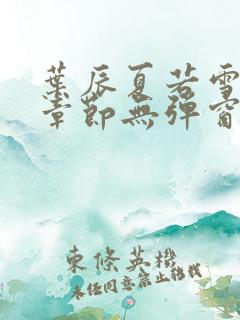 葉辰夏若雪
章節無彈窗
東條英機
未經同意禁止轉載